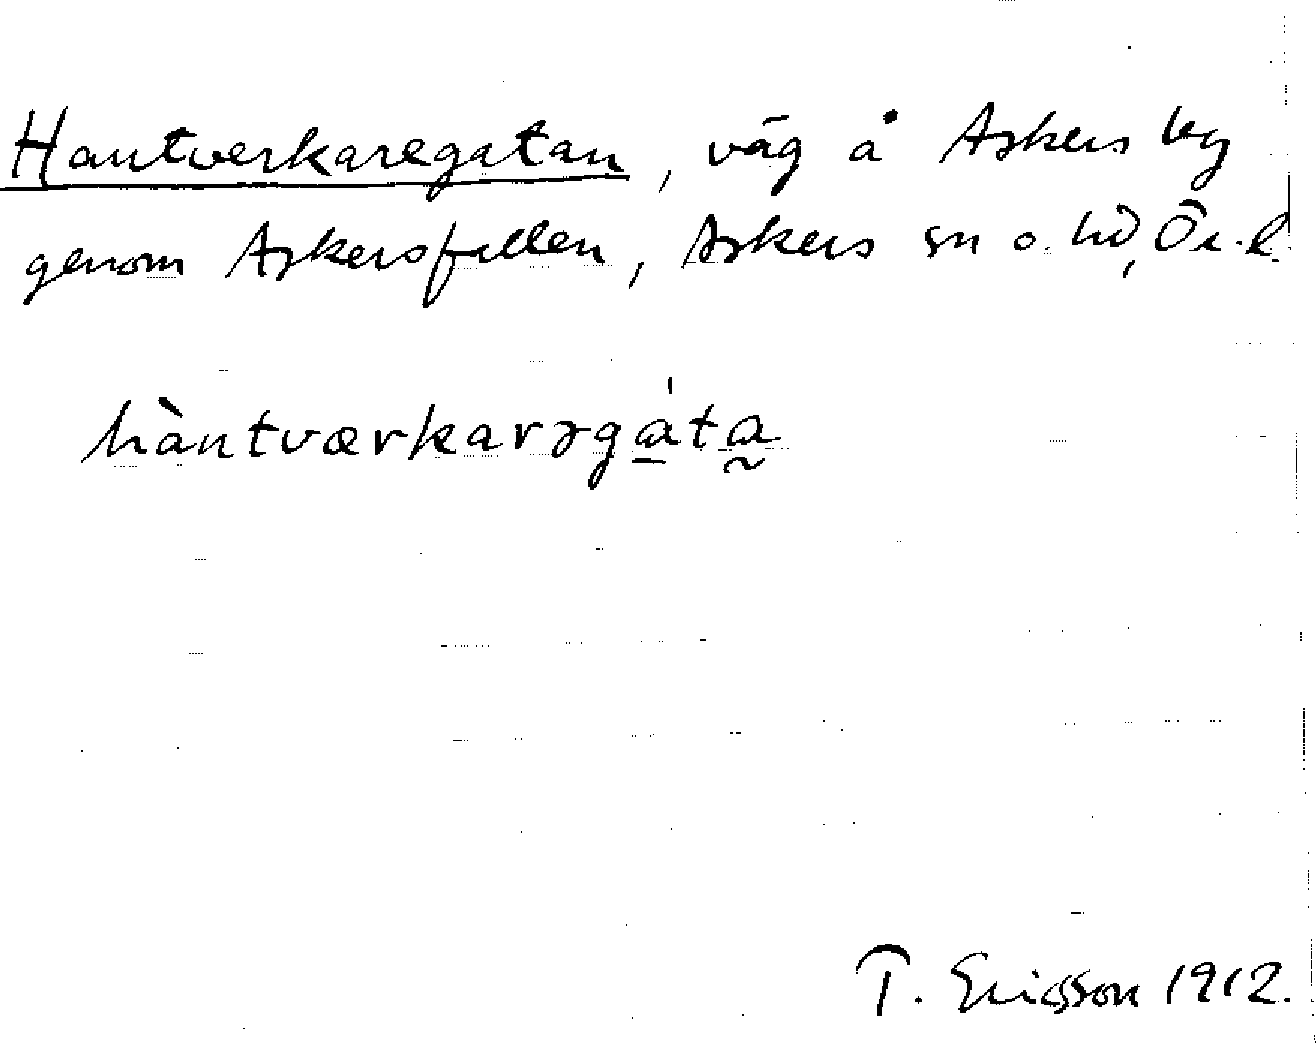 Hantverkaregatan, väg å Askers by
genom Askersfallen, Askers sn o. hd, Ör. l.
hàntværkarəgata
T. Ericsson 1912.